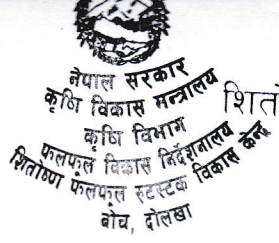 नेपाल सरकार
कृषि विकास मन्त्रालय
कृषि विभाग
फलफूल विकास निर्देशनालय
शितोष्ण फलफूल रुटस्टक विकास केन्द्र
बोच, दोलखा
शितो